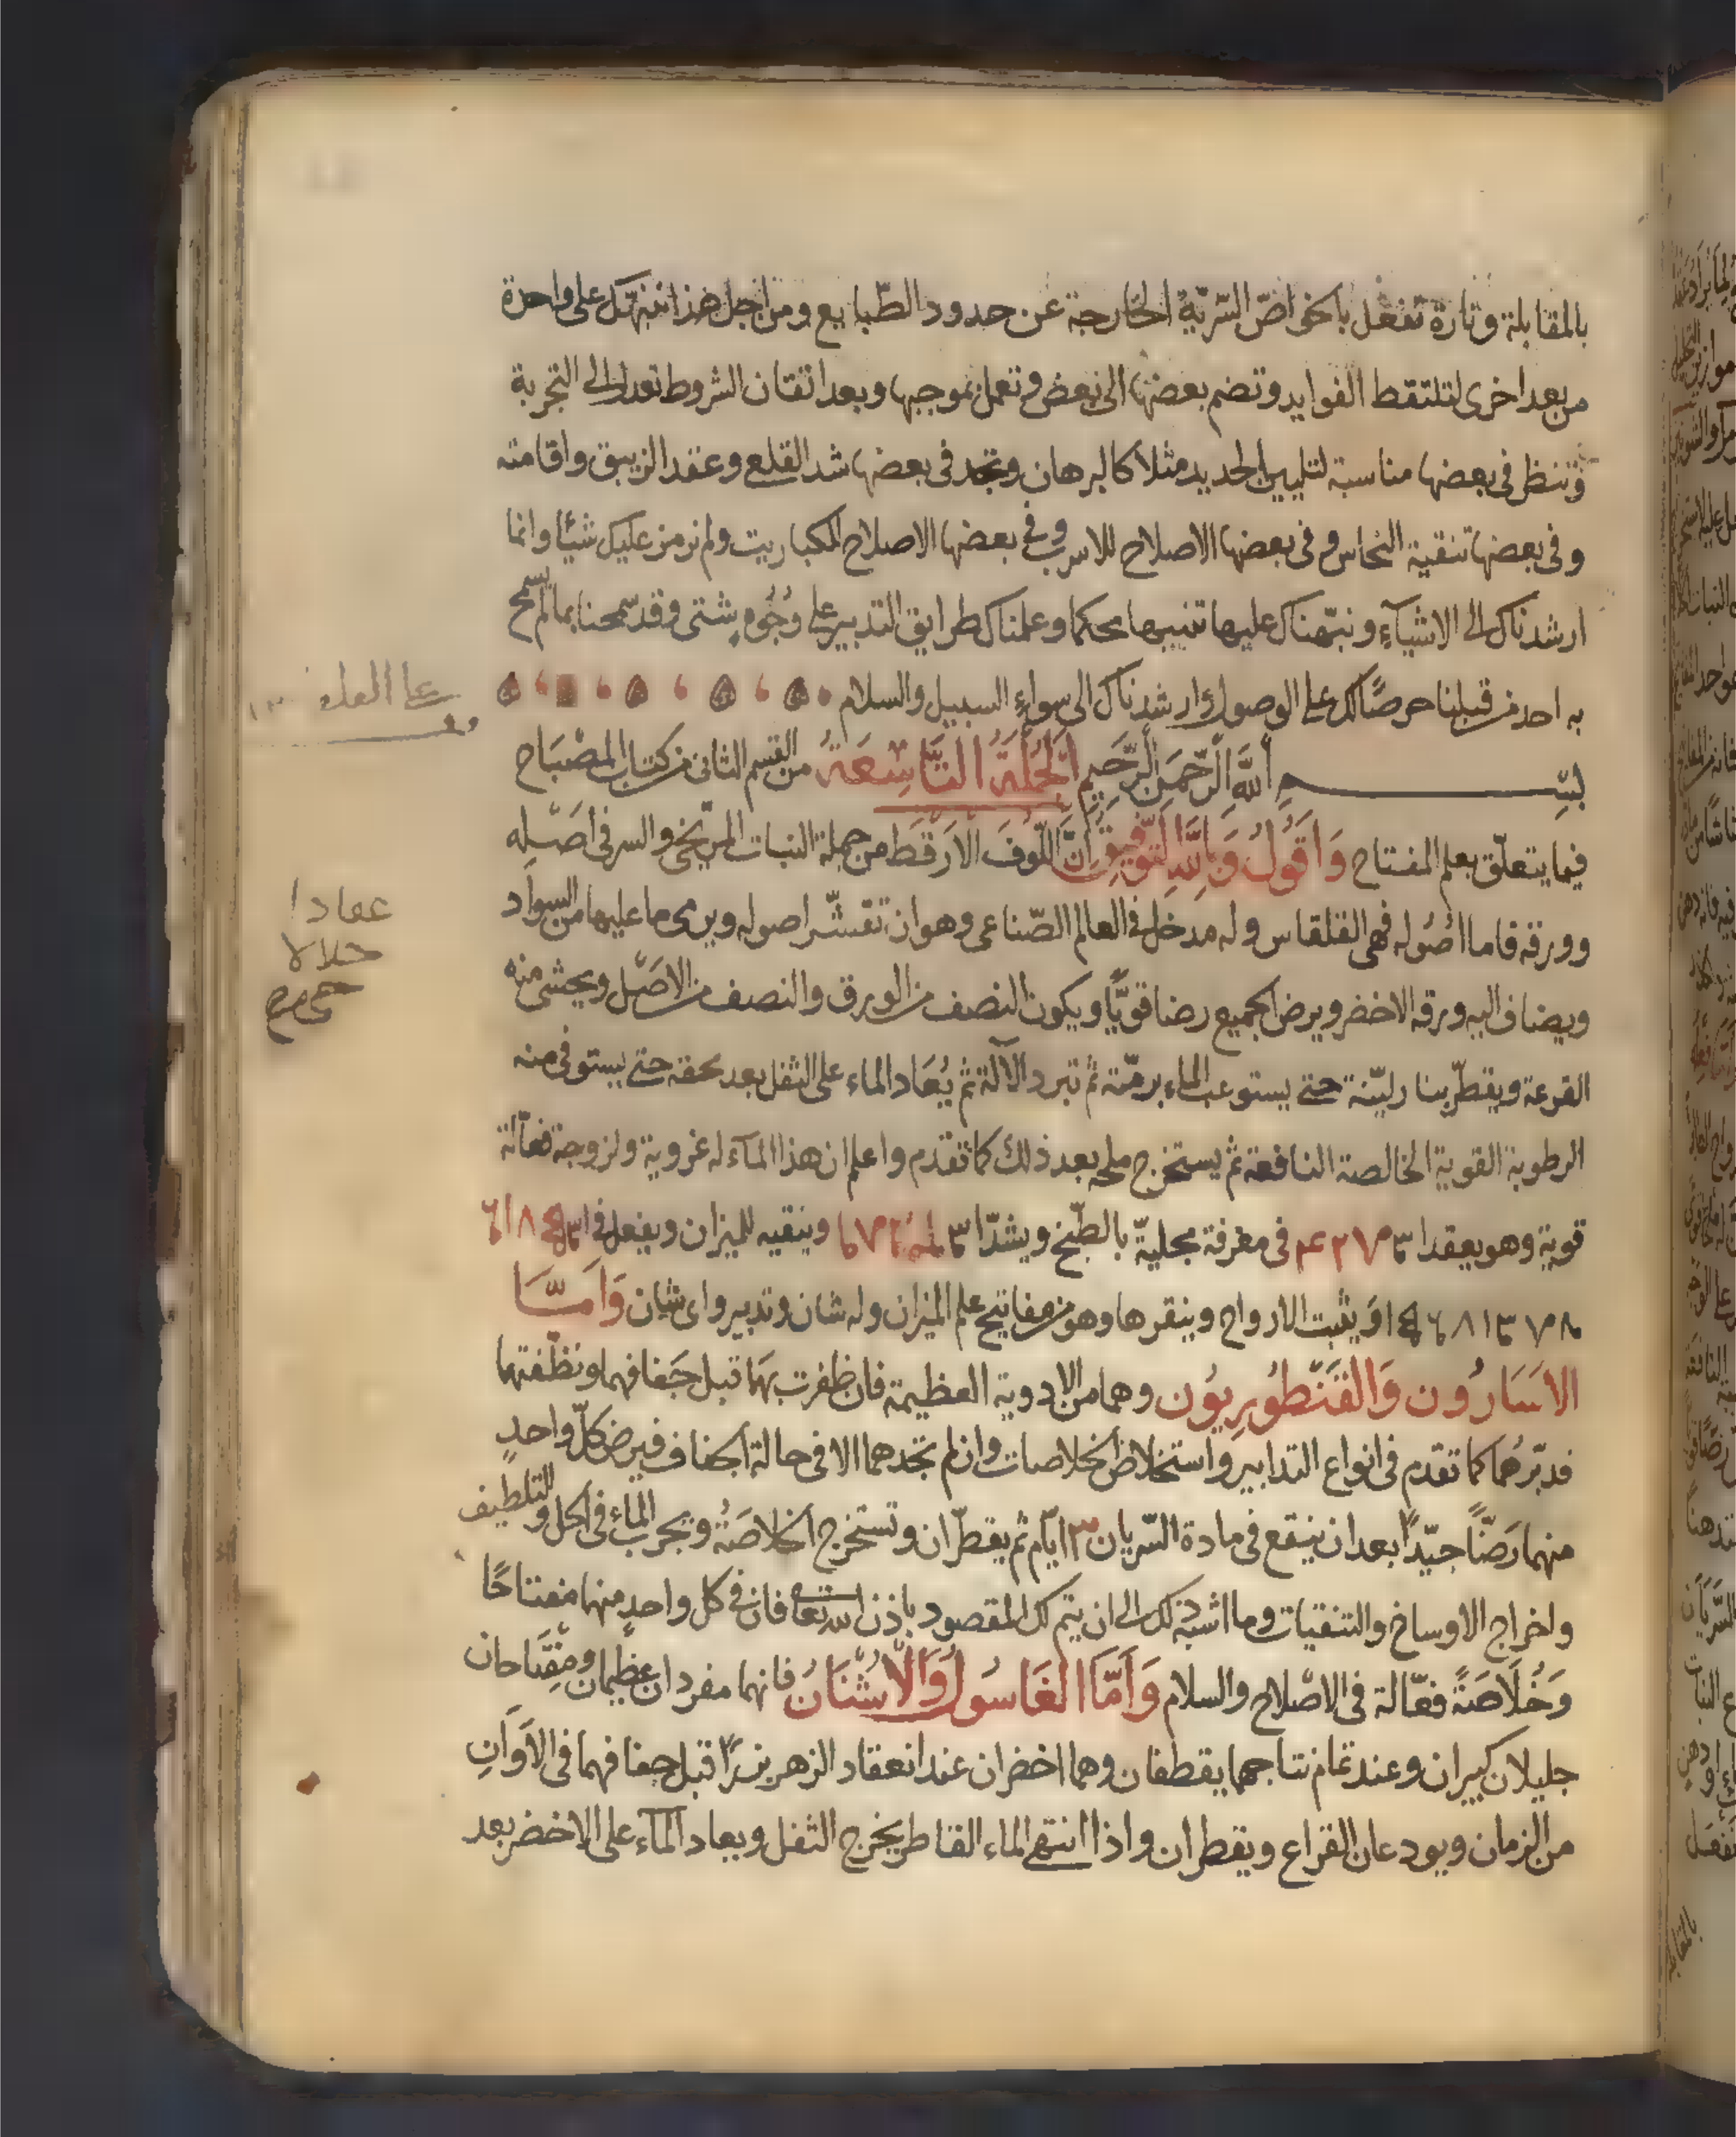 بالمقابلة وتارة تفعل بالخواصّ السّرّيّة الخارجة عن حدود الطّبايع ومن اجل هذا ننبّهك على واحدة
من بعد اخرى لتلتقط الفوايد وتضم بعضها الى بعض وتعمل بموجبها وبعد اتقان الشروط تعدل الى التجربة
وتنظر في بعضها مناسبة لتليين الحديد مثلا كالبرهان وتجد في بعضها شد القلع وعقد الزيبق واقامته
وفي بعضها تنقية النحاس وفي بعضها الاصلاح للاسرب وفي بعضها الاصلاح للكباريت ولم نرمز عليك شيئا وانما
ارشدناك الى الاشيآء ونبّهناك عليها تنبيها محكما وعلمناك طرايق التدبير على وُجُوهٍ شتى وقد سمحنا بما لم يسمح
به احد من قبلنا حرصًا لك على الوصول وارشدناك الى سواء السبيل والسلام
بسم الله الرّحمن الرّحيم الجملة التّاسعة من القسم الثانى من كتاب المصباح
فيما يتعلّق بعلم المفتاح وَاَقُولُ وَبِاللهِ التَّوْفِيق اِنَّ اللّوفَ الارقط من جملة النبات المرّيخى والسر فى اصله
وورقه فاما اصُوله فهى القلقاس وله مدخل فى العالم الصّناعى وهو ان تقشّر اصوله ويرمى ما عليها من السواد
ويضاف اليه ورقه الاخضر ويرض الجميع رضا قويًّا ويكون النصف من الورق والنصف من الاصل ويحشى منه
القرعة ويقطّر بنار ليّنة حتى يستوعب الماء برمّته ثم تبرد الآلة ثم يُعَاد الماء على الثفل بعد سحقه حتى يستوفى منه
الرطوبة القوية الخالصة النافعة ثم يستخرج ملحه بعد ذلك كما تقدم واعلم ان هذا المآء له غروية ولزوجة فعّالة
قوية وهو يعقد ا فى مغرفة مجليةّ بالطّبخ ويشدّ ا وينقيه للميزان ويفعل فى ا
او يثبت الارواح وينقرها وهو من مفاتيح علم الميزان وله شان وتدبير واى شان وَاَمّــَا
الاَسَارُون وَالقَنْطُورِيُون وهما من الادوية العظيمة فان ظفرت بهما قبل جَفافهما ونظّفتهما
فدبّرهُما كما تقدم فى انواع التدابير واستخلاص الخلاصات وان لم تجدهما الا فى حالة الجفاف فيرض كلّ واحدٍ
منهما رَضًّا جيّدًا بعد ان ينقع فى مادة السّريان ٣ ايّام ثم يقطّران وتستخرج الخلاصَةُ وتجرب الماء فى الحل والتلطيف
واخراج الاوساخ والتنقيات وما اشبه ذلك الى ان يتم لك المقصود باذن الله تعا فان فى كل واحدٍ منهما مفتاحًا
وَخُلَاصَةً فعّالة فى الاصْلاح والسلام وَاَمَّا الغَاسُول وَالأُشْنَانُ فانهما مفردان عظيمان ومفتاحان
جليلان كبيران وعند تمام نتاجهما يقطفان وهما اخضران عند انعقاد الزهر بزرًا قبل جفافهما فى الاَوَانِ
من الزمان ويودعان القراع ويقطران واذا انتهى الماء القاطر يخرج الثفل ويعاد المآء على الاخضر بعد